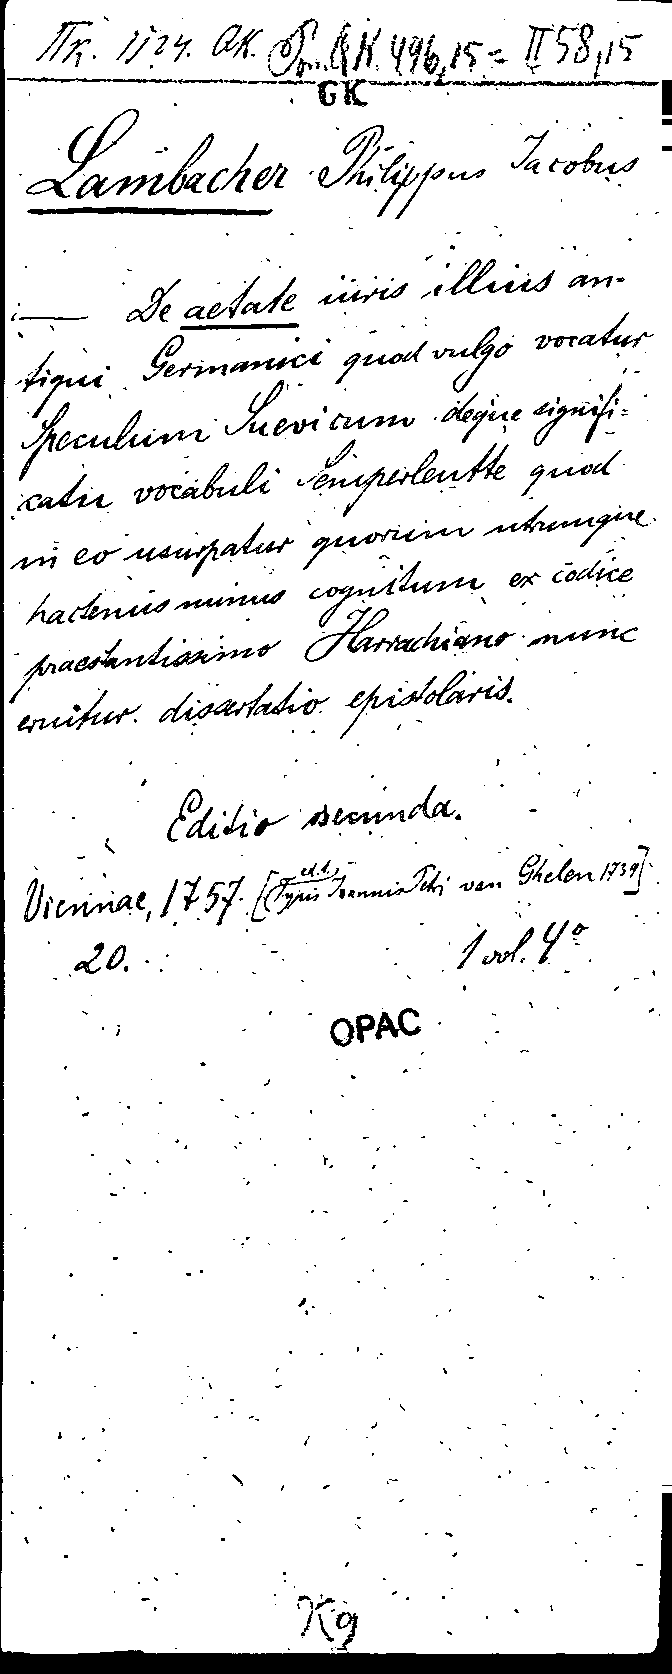 IIk. 1524. QK. Pom. QK. 496,15 = II 58,15
GK
Lambacher Philippus Jacobus
— De aetate iuris illius an-
tiqui Germanici quod vulgo vocatur
Speculum Suevicum deque signifi=
catu vocabuli Semperleutte quod
in eo usurpatur quorum utrumque
hactenus minus cognitum ex codice
praestantissimo Harrachiano nunc
eruitur. dissertatio epistolaris.
Editio secunda.
Viennae, 1757. [Typis Joannis Petri van Ghelen 1739]
20. 1 vol. 4º
OPAC
Kg